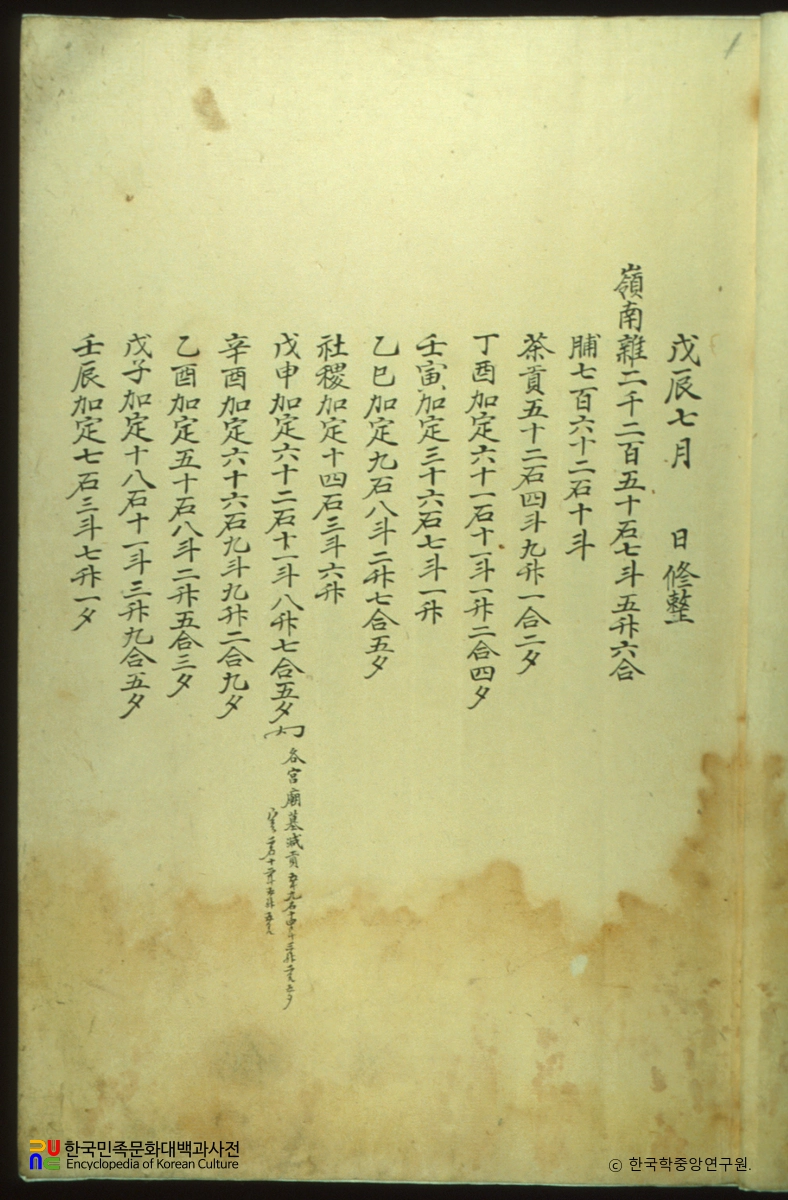 戊辰七月 日修整
嶺南雜二千二百五十石七斗五升六合
脯七百六十二石十斗
茶貢五十二石四斗九升一合二夕
丁酉加定六十一石十一斗一升二合四夕
壬寅加定三十六石七斗一升
乙巳加定九石八斗二升七合五夕
社稷加定十四石三斗六升
戊申加定六十二石十一斗八升七合五夕
各宮廟墓減貢
辛酉加定六十六石九斗九升二合九夕
乙酉加定五十石八斗二升五合三夕
戊子加定十八石十一斗三升九合五夕
壬辰加定七石三斗七升一夕
한국민족문화대백과사전
Encyclopedia of Korean Culture
ⓒ 한국학중앙연구원.